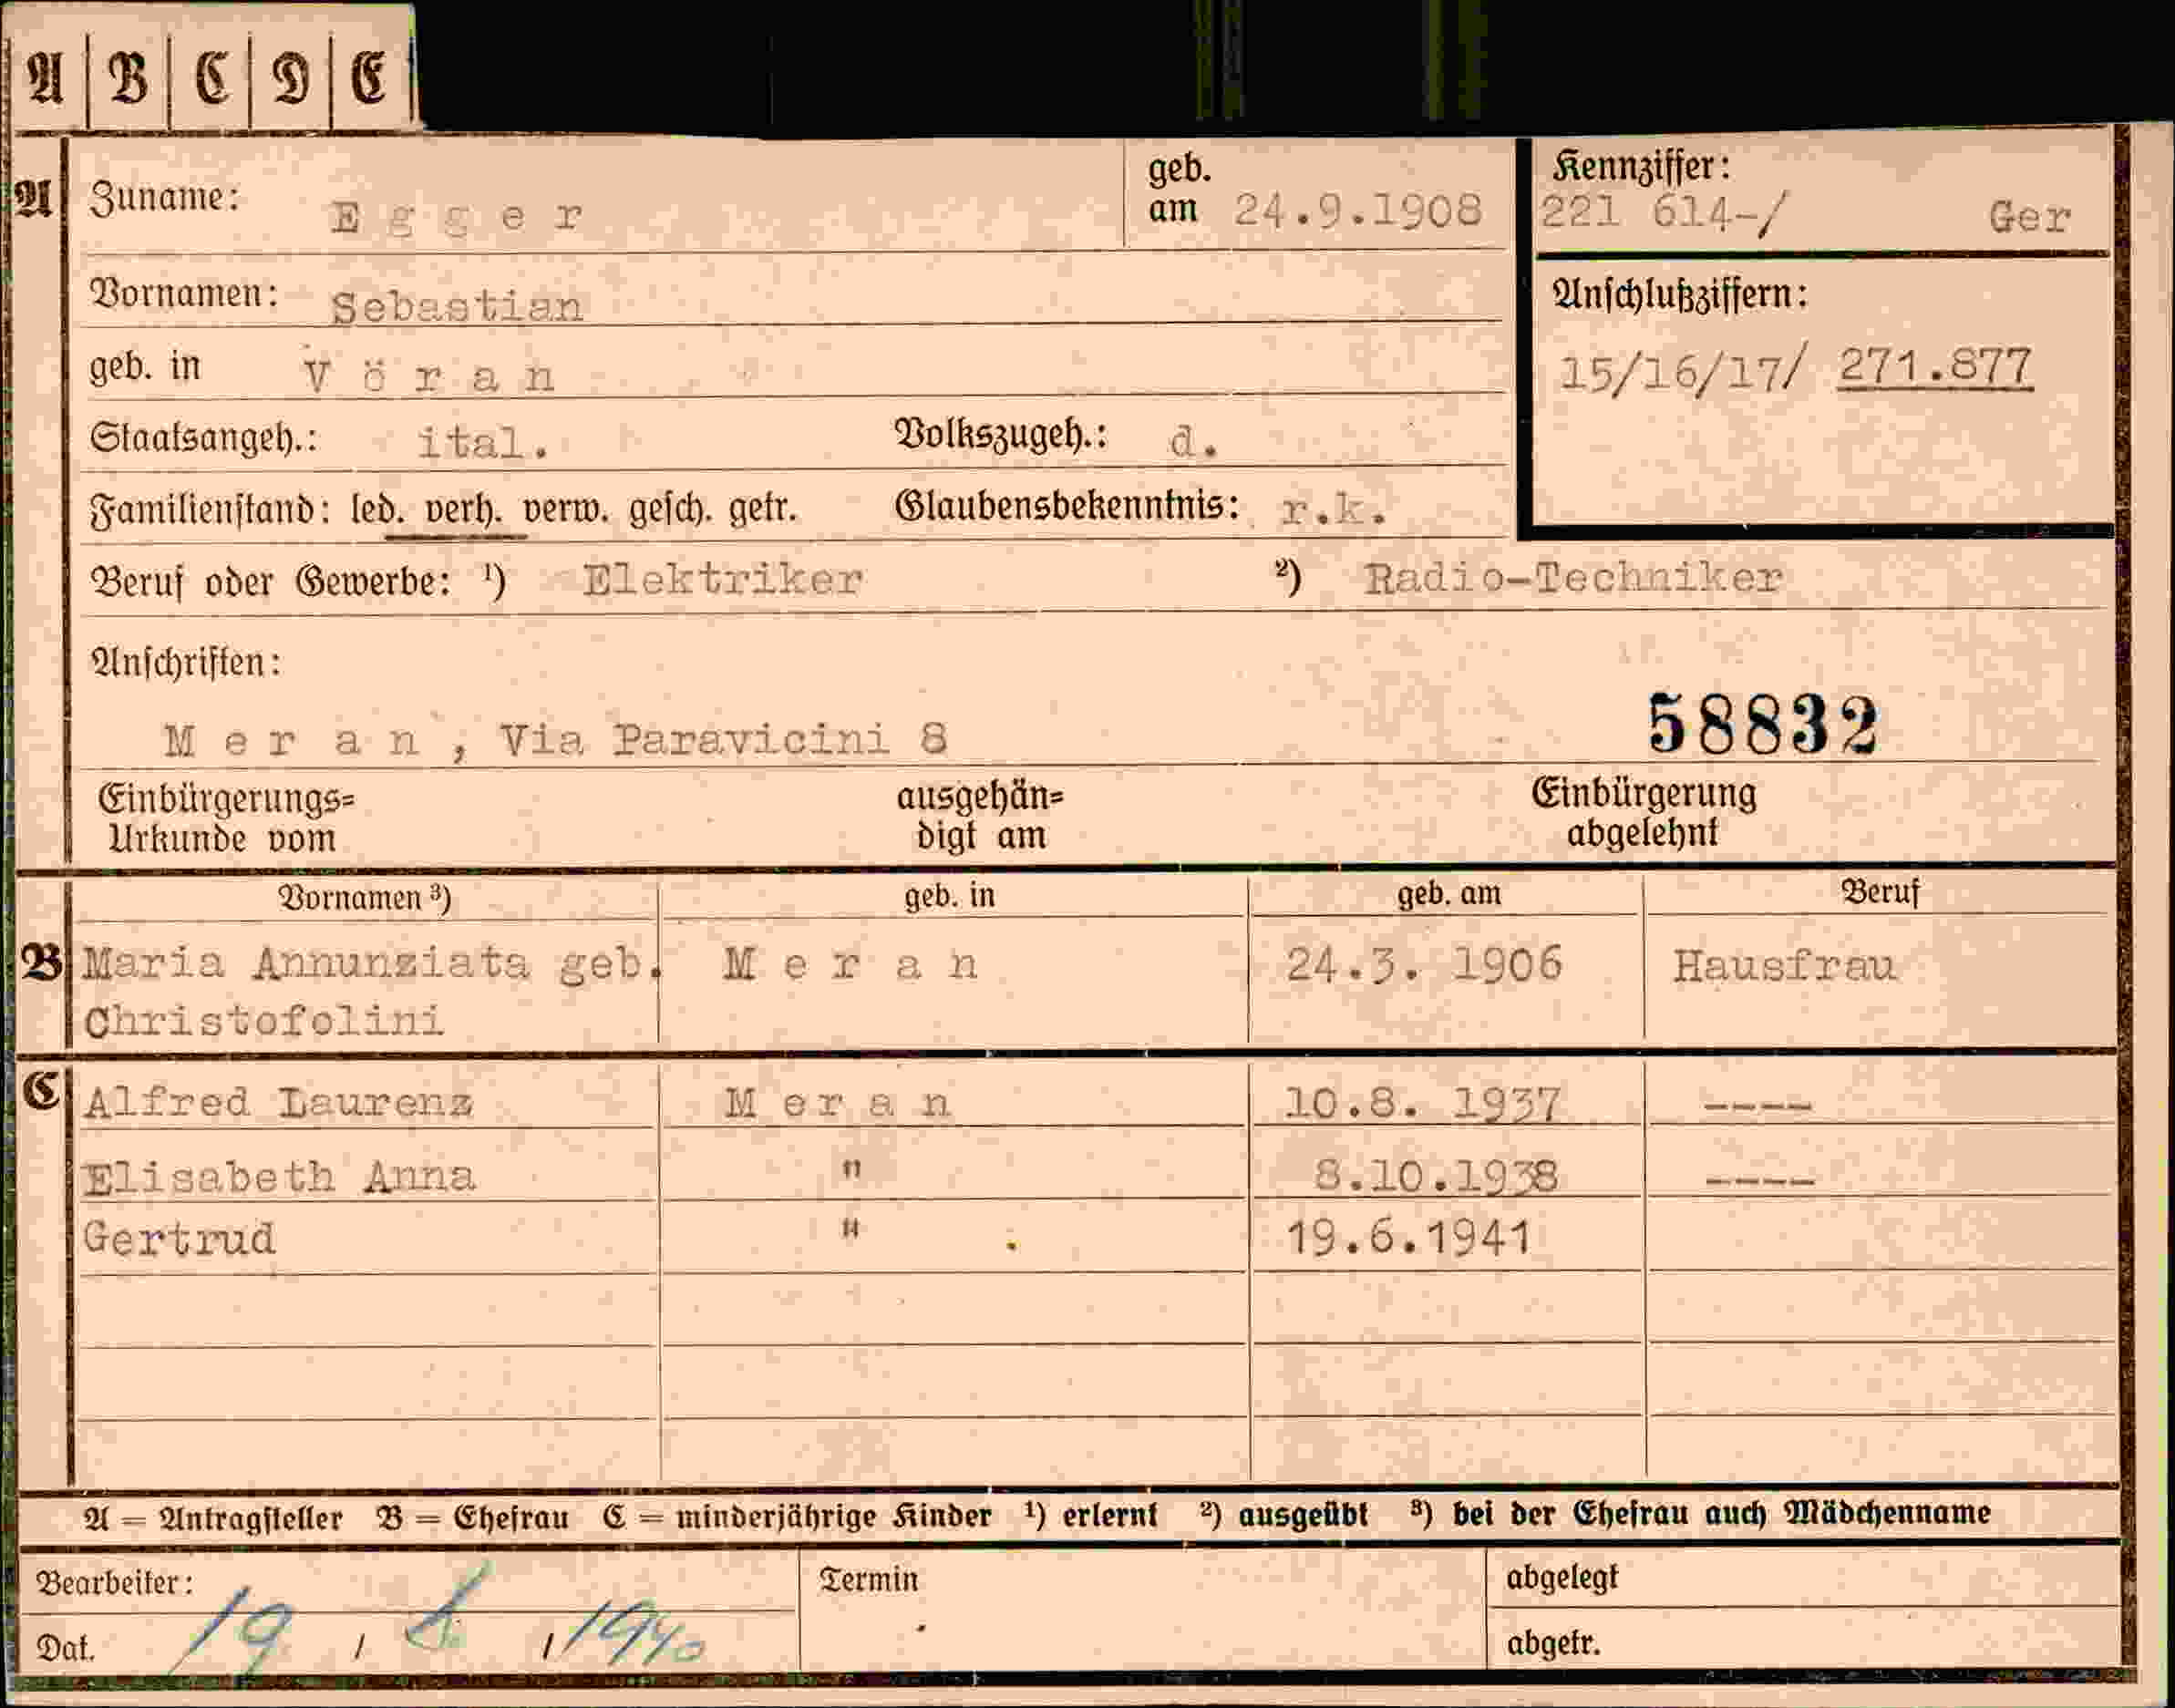 A | B | C | D | E
A Zuname: Egger geb. am 24.9.1908 Kennziffer: 221 614-/ Ger
Vornamen: Sebastian Anschlußziffern:
geb. in Vöran 15/16/17/ 271.877
Staatsangeh.: ital. Volkszugeh.: d.
Familienstand: led. verh. verw. gesch. getr. Glaubensbekenntnis: r.k.
Beruf oder Gewerbe: ¹) Elektriker ²) Radio-Techniker
Anschriften:
Meran, Via Paravicini 8 58832
Einbürgerungs= ausgehän= Einbürgerung
Urkunde vom digt am abgelehnt
Vornamen ³) geb. in geb. am Beruf
B Maria Annunziata geb. Meran 24.3. 1906 Hausfrau
Christofolini
C Alfred Laurenz Meran 10.8. 1937 ----
Elisabeth Anna " 8.10.1938 ----
Gertrud " 19.6.1941
A = Antragsteller B = Ehefrau C = minderjährige Kinder ¹) erlernt ²) ausgeübt ³) bei der Ehefrau auch Mädchenname
Bearbeiter: Termin abgelegt
Dat. 19 / / 1940 abgetr.